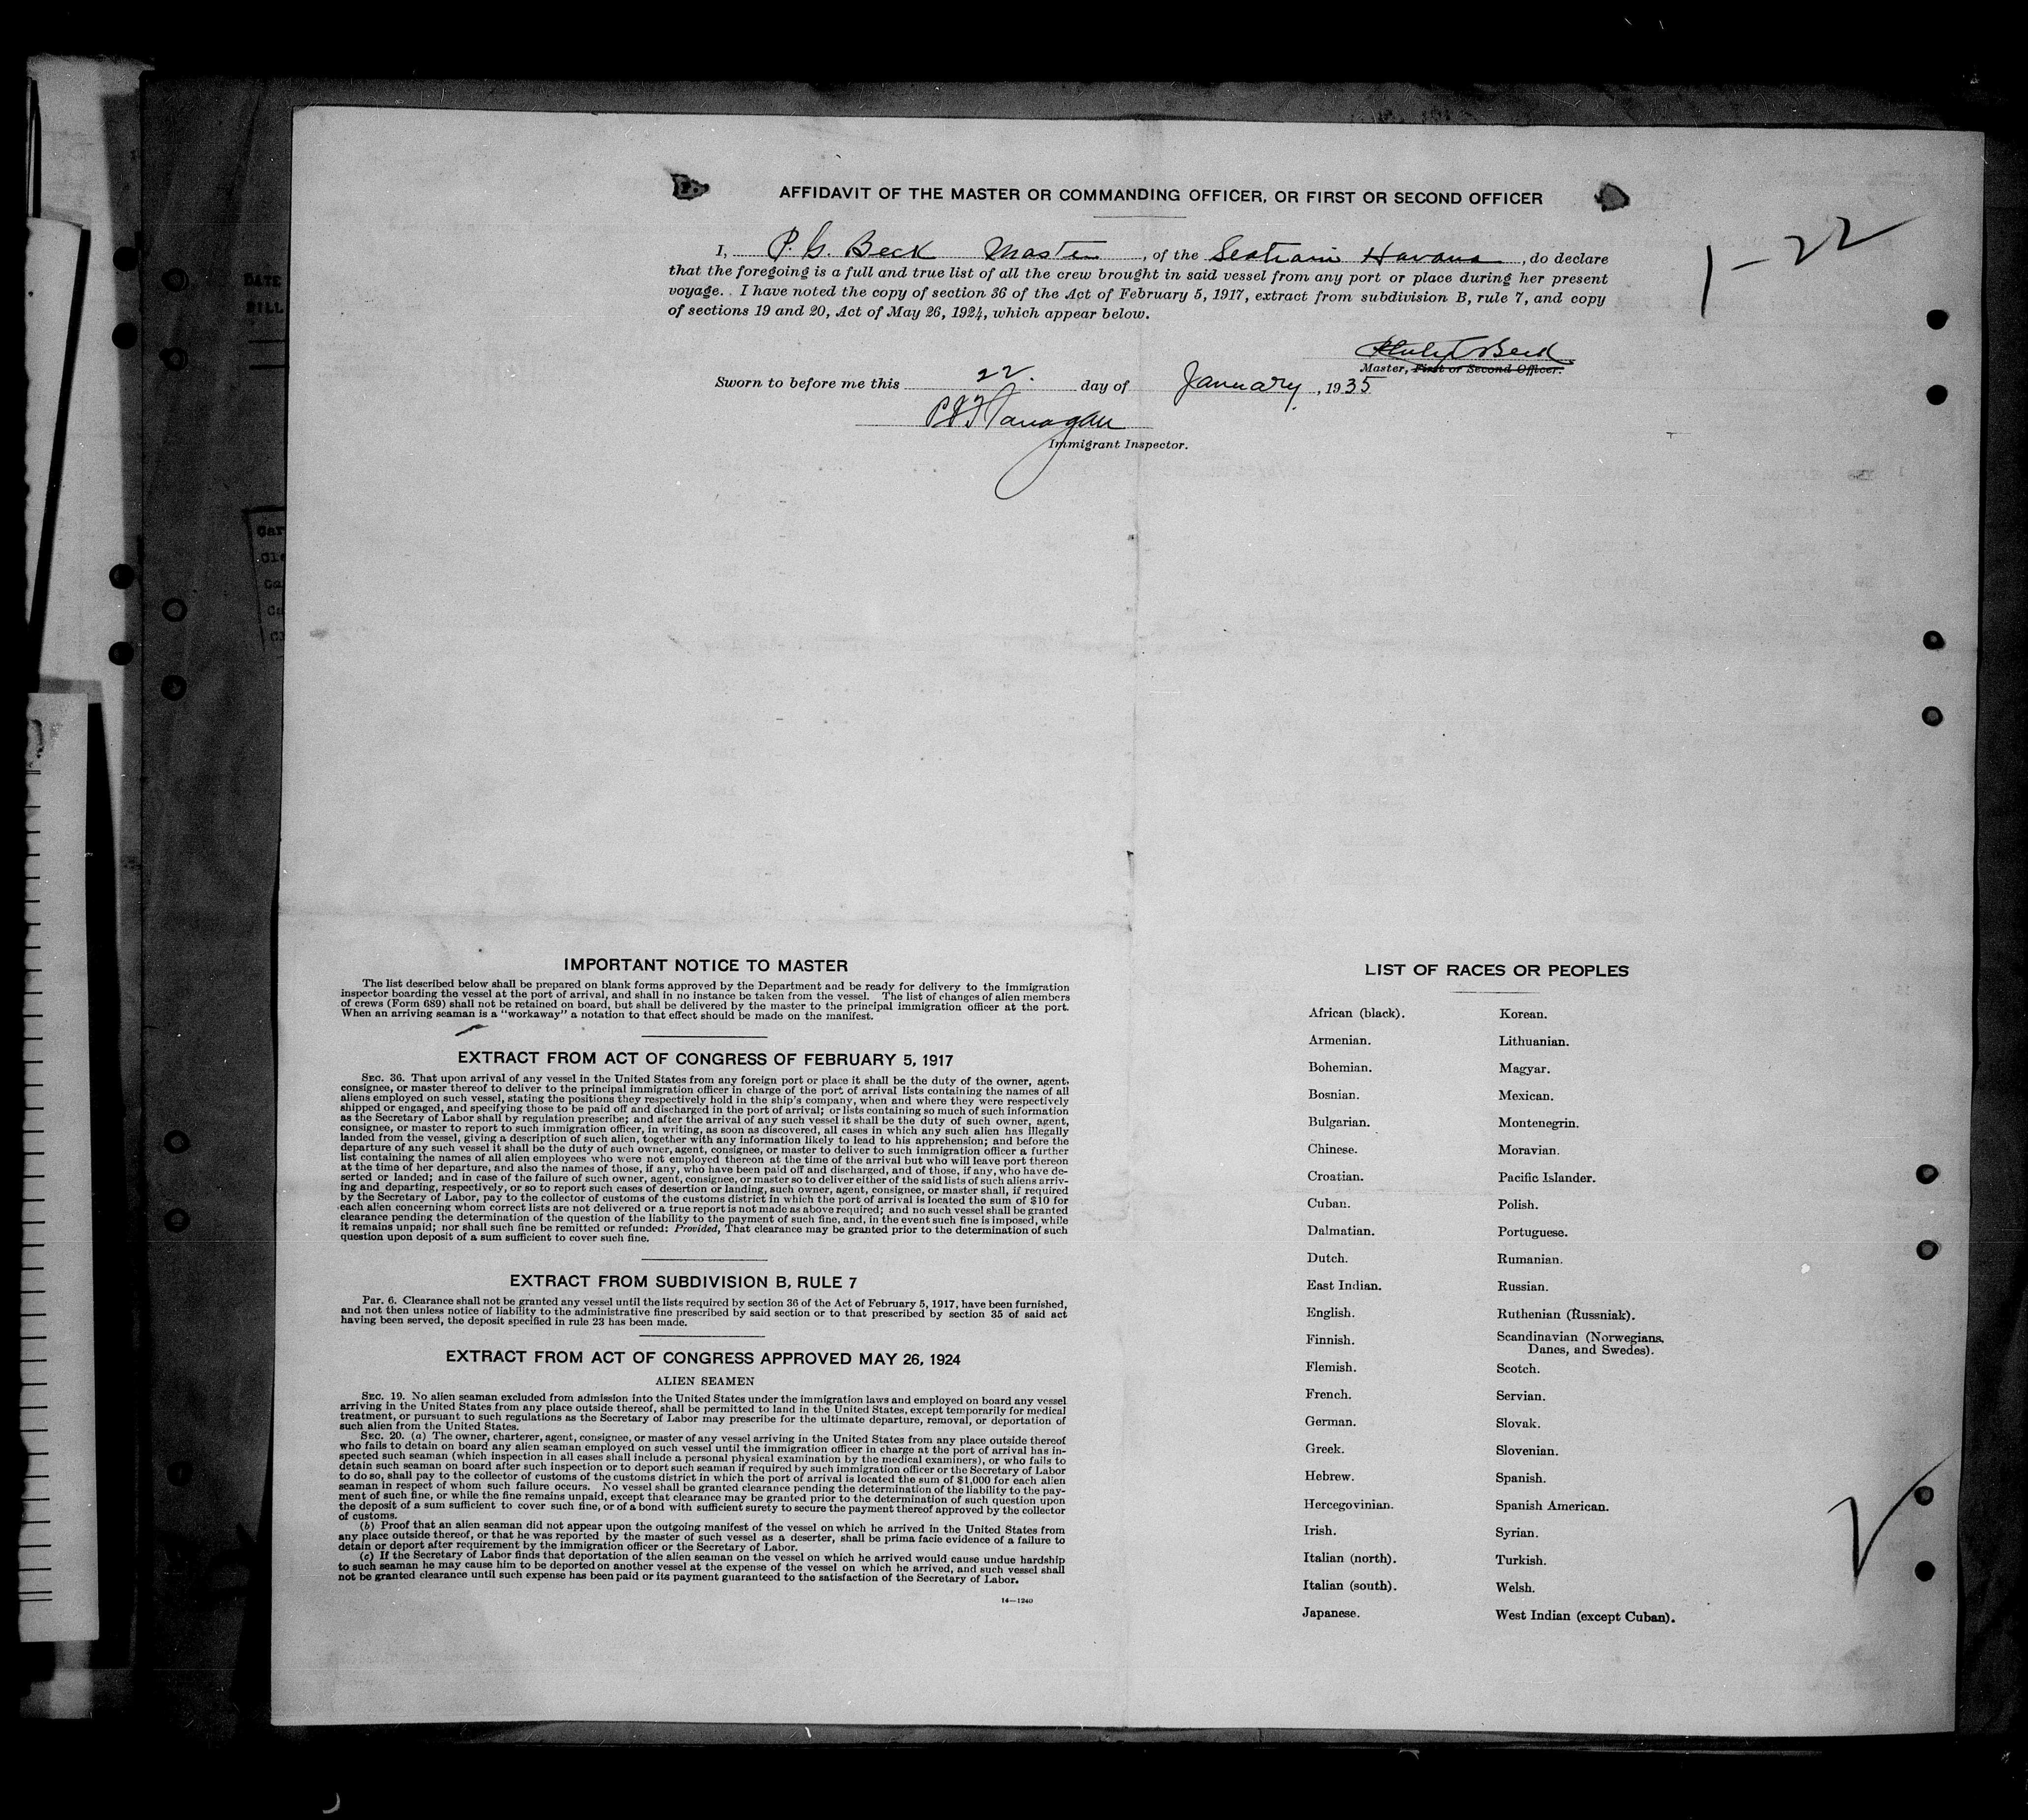 AFFIDAVIT OF THE MASTER OR COMMANDING OFFICER, OR FIRST OR SECOND OFFICER
1-22
I, P. G. Beck Master, of the Seatrain Havana, do declare
that the foregoing is a full and true list of all the crew brought in said vessel from any port or place during her present
voyage. I have noted the copy of section 36 of the Act of February 5, 1917, extract from subdivision B, rule 7, and copy
of sections 19 and 20, Act of May 26, 1924, which appear below.
Beck
Master, First or Second Officer.
Sworn to before me this 22. day of January, 1935
Flanagan
Immigrant Inspector.
DATE
BILL
Car
Cle
Ca
IMPORTANT NOTICE TO MASTER
The list described below shall be prepared on blank forms approved by the Department and be ready for delivery to the immigration
inspector boarding the vessel at the port of arrival, and shall in no instance be taken from the vessel. The list of changes of alien members
of crews (Form 689) shall not be retained on board, but shall be delivered by the master to the principal immigration officer at the port.
When an arriving seaman is a "workaway" a notation to that effect should be made on the manifest.
EXTRACT FROM ACT OF CONGRESS OF FEBRUARY 5, 1917
SEC. 36. That upon arrival of any vessel in the United States from any foreign port or place it shall be the duty of the owner, agent,
consignee, or master thereof to deliver to the principal immigration officer in charge of the port of arrival lists containing the names of all
aliens employed on such vessel, stating the positions they respectively hold in the ship's company, when and where they were respectively
shipped or engaged, and specifying those to be paid off and discharged in the port of arrival; or lists containing so much of such information
as the Secretary of Labor shall by regulation prescribe; and after the arrival of any such vessel it shall be the duty of such owner, agent,
consignee, or master to report to such immigration officer, in writing, as soon as discovered, all cases in which any such alien has illegally
landed from the vessel, giving a description of such alien, together with any information likely to lead to his apprehension; and before the
departure of any such vessel it shall be the duty of such owner, agent, consignee, or master to deliver to such immigration officer a further
list containing the names of all alien employees who were not employed thereon at the time of the arrival but who will leave port thereon
at the time of her departure, and also the names of those, if any, who have been paid off and discharged, and of those, if any, who have de-
serted or landed; and in case of the failure of such owner, agent, consignee, or master so to deliver either of the said lists of such aliens arriv-
ing and departing, respectively, or so to report such cases of desertion or landing, such owner, agent, consignee, or master shall, if required
by the Secretary of Labor, pay to the collector of customs of the customs district in which the port of arrival is located the sum of $10 for
each alien concerning whom correct lists are not delivered or a true report is not made as above required; and no such vessel shall be granted
clearance pending the determination of the question of the liability to the payment of such fine, and, in the event such fine is imposed, while
it remains unpaid; nor shall such fine be remitted or refunded: Provided, That clearance may be granted prior to the determination of such
question upon deposit of a sum sufficient to cover such fine.
EXTRACT FROM SUBDIVISION B, RULE 7
PAR. 6. Clearance shall not be granted any vessel until the lists required by section 36 of the Act of February 5, 1917, have been furnished,
and not then unless notice of liability to the administrative fine prescribed by said section or to that prescribed by section 35 of said act
having been served, the deposit specified in rule 23 has been made.
EXTRACT FROM ACT OF CONGRESS APPROVED MAY 26, 1924
ALIEN SEAMEN
SEC. 19. No alien seaman excluded from admission into the United States under the immigration laws and employed on board any vessel
arriving in the United States from any place outside thereof, shall be permitted to land in the United States, except temporarily for medical
treatment, or pursuant to such regulations as the Secretary of Labor may prescribe for the ultimate departure, removal, or deportation of
such alien from the United States.
SEC. 20. (a) The owner, charterer, agent, consignee, or master of any vessel arriving in the United States from any place outside thereof
who fails to detain on board any alien seaman employed on such vessel until the immigration officer in charge at the port of arrival has in-
spected such seaman (which inspection in all cases shall include a personal physical examination by the medical examiners), or who fails to
detain such seaman on board after such inspection or to deport such seaman if required by such immigration officer or the Secretary of Labor
to do so, shall pay to the collector of customs of the customs district in which the port of arrival is located the sum of $1,000 for each alien
seaman in respect of whom such failure occurs. No vessel shall be granted clearance pending the determination of the liability to the pay-
ment of such fine, or while the fine remains unpaid, except that clearance may be granted prior to the determination of such question upon
the deposit of a sum sufficient to cover such fine, or of a bond with sufficient surety to secure the payment thereof approved by the collector
of customs.
(b) Proof that an alien seaman did not appear upon the outgoing manifest of the vessel on which he arrived in the United States from
any place outside thereof, or that he was reported by the master of such vessel as a deserter, shall be prima facie evidence of a failure to
detain or deport after requirement by the immigration officer or the Secretary of Labor.
(c) If the Secretary of Labor finds that deportation of the alien seaman on the vessel on which he arrived would cause undue hardship
to such seaman he may cause him to be deported on another vessel at the expense of the vessel on which he arrived, and such vessel shall
not be granted clearance until such expense has been paid or its payment guaranteed to the satisfaction of the Secretary of Labor.
14—1240
LIST OF RACES OR PEOPLES
African (black).
Armenian.
Bohemian.
Bosnian.
Bulgarian.
Chinese.
Croatian.
Cuban.
Dalmatian.
Dutch.
East Indian.
English.
Finnish.
Flemish.
French.
German.
Greek.
Hebrew.
Hercegovinian.
Irish.
Italian (north).
Italian (south).
Japanese.
Korean.
Lithuanian.
Magyar.
Mexican.
Montenegrin.
Moravian.
Pacific Islander.
Polish.
Portuguese.
Rumanian.
Russian.
Ruthenian (Russniak).
Scandinavian (Norwegians,
Danes, and Swedes).
Scotch.
Servian.
Slovak.
Slovenian.
Spanish.
Spanish American.
Syrian.
Turkish.
Welsh.
West Indian (except Cuban).